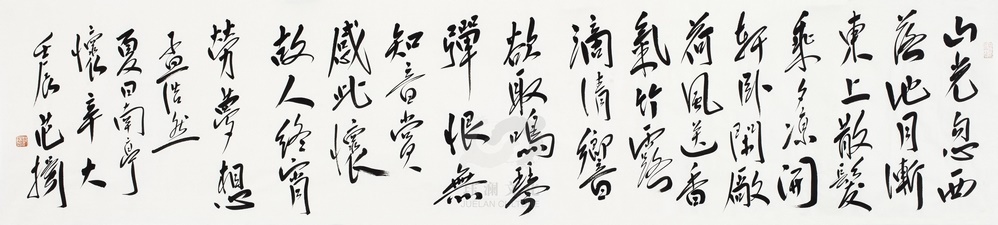 山光忽西
落池月漸
東上散髮
乘夕涼開
軒臥閑敞
荷風送香
氣竹露
滴清響
欲取鳴琴
彈恨無
知音賞
感此懷
故人終宵
勞夢想
孟浩然
夏日南亭
懷辛大
壬辰范